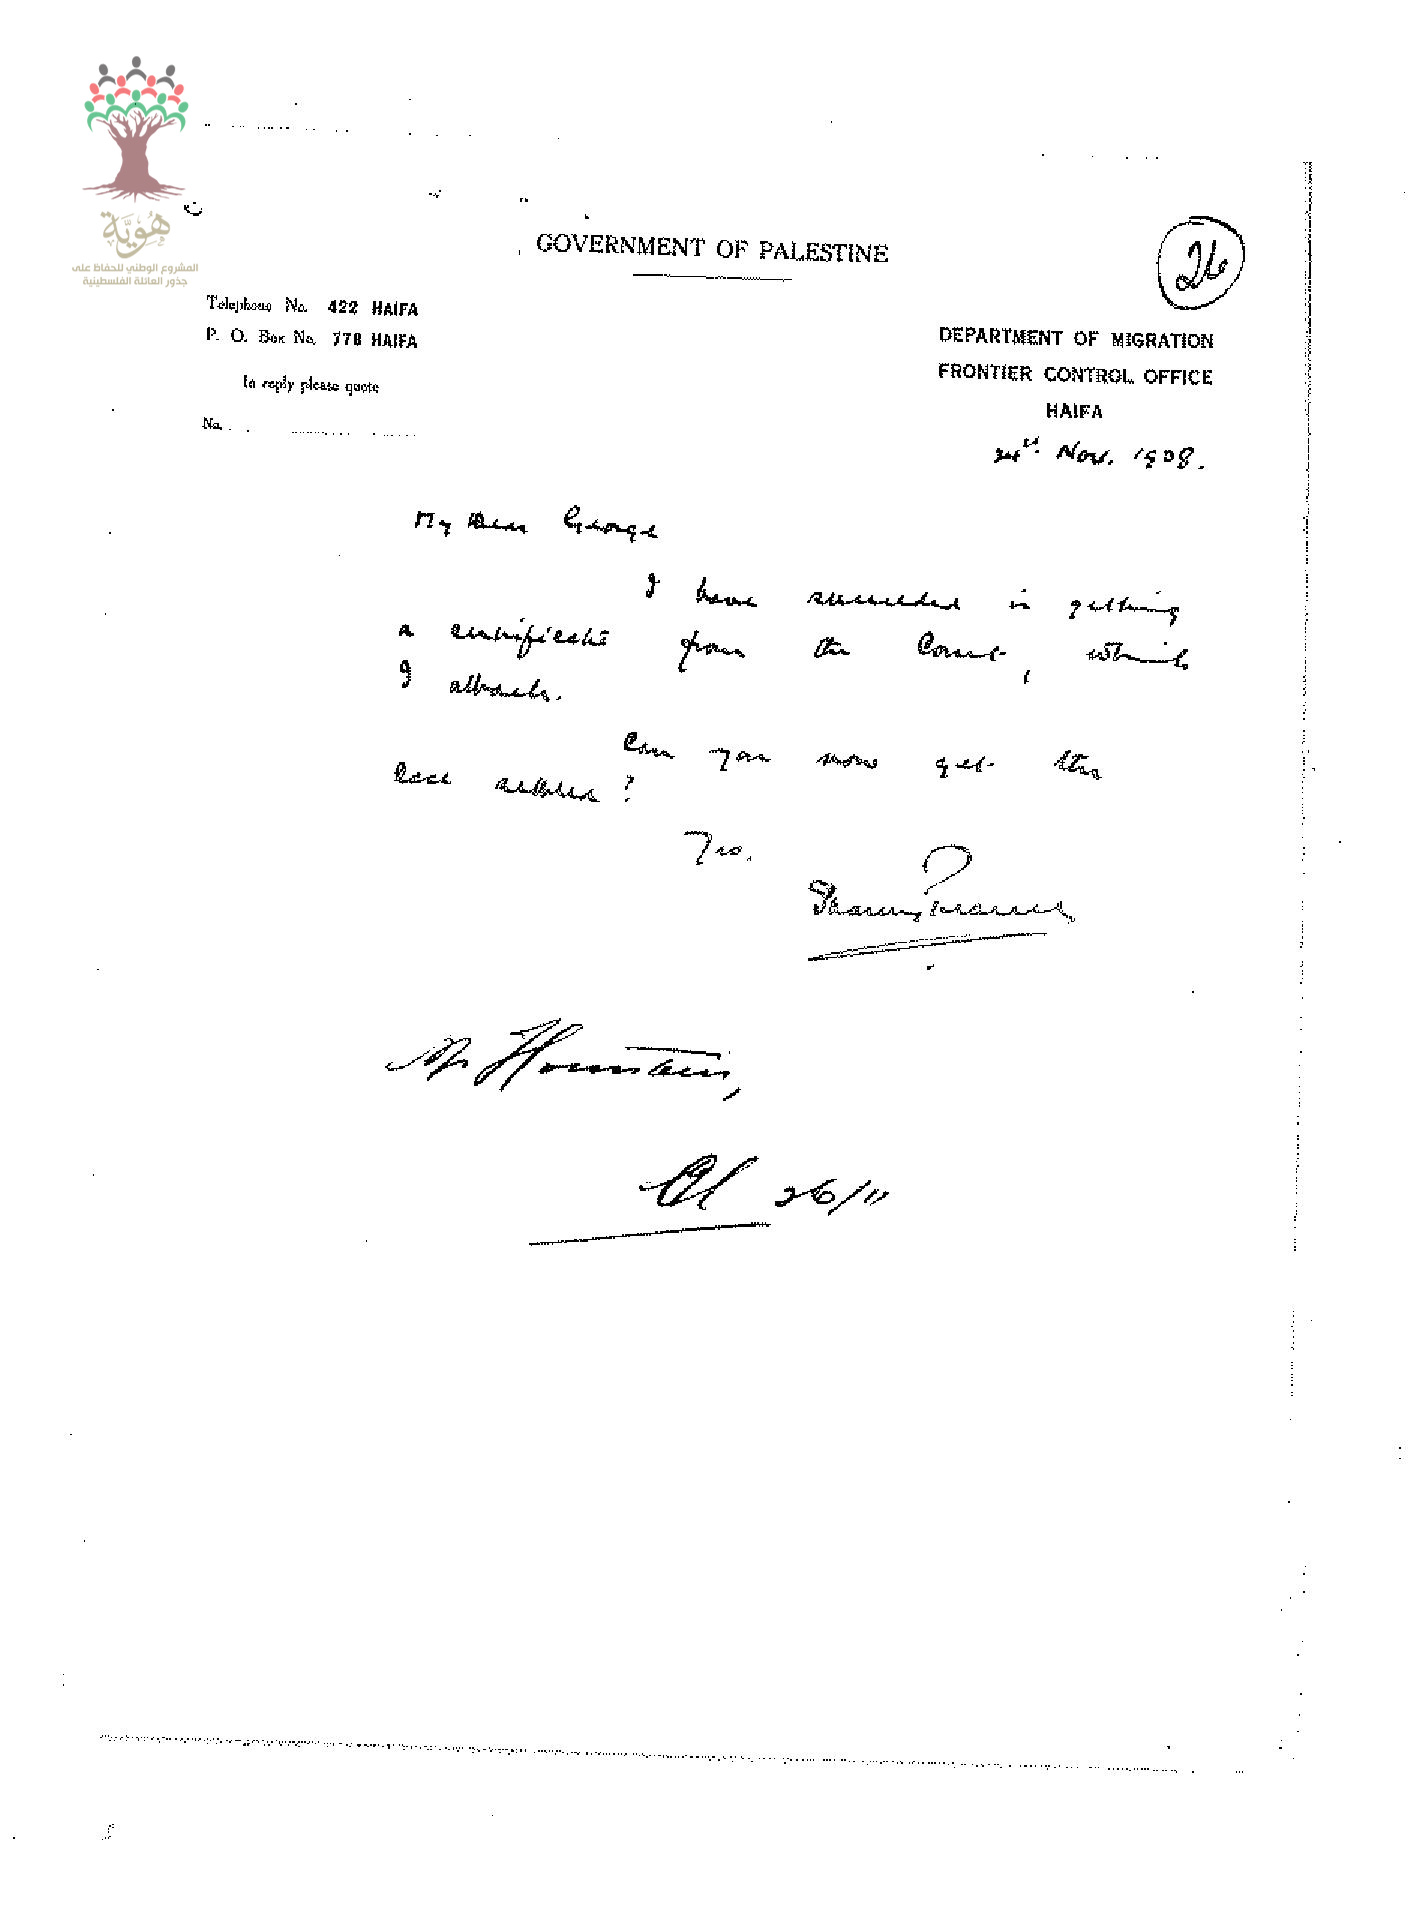 هُوِيَّة
المشروع الوطني للحفاظ على
جذور العائلة الفلسطينية
GOVERNMENT OF PALESTINE
26
Telephone No. 422 HAIFA
P. O. Box No. 778 HAIFA
In reply please quote
No.
DEPARTMENT OF MIGRATION
FRONTIER CONTROL OFFICE
HAIFA
Nov. 1938.
My Dear George
I have succeeded in getting
a certificate from the Court, which
I attach.
Can you now get this
case settled?
Mr Hounstain,
26/11